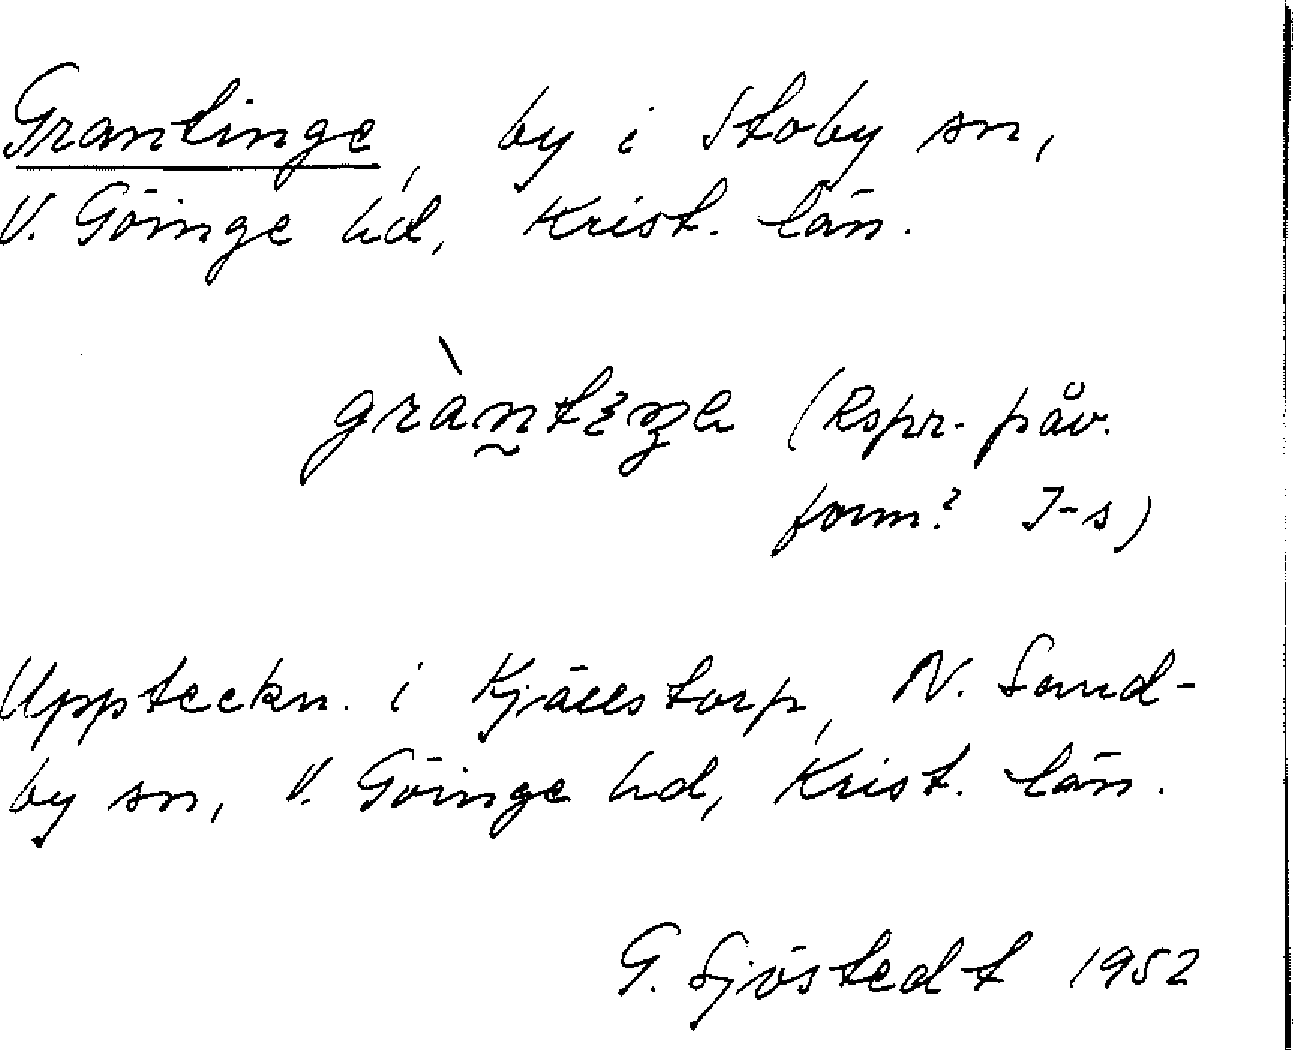 Grantinge, by i Stoby sn,
V. Göinge hd, Krist. län.
gràntiŋe (Rspr.-påv.
form? I-s)
Uppteckn. i Kjällstorp, N. Sand-
by sn, V. Göinge hd, Krist. län.
G. Sjöstedt 1952